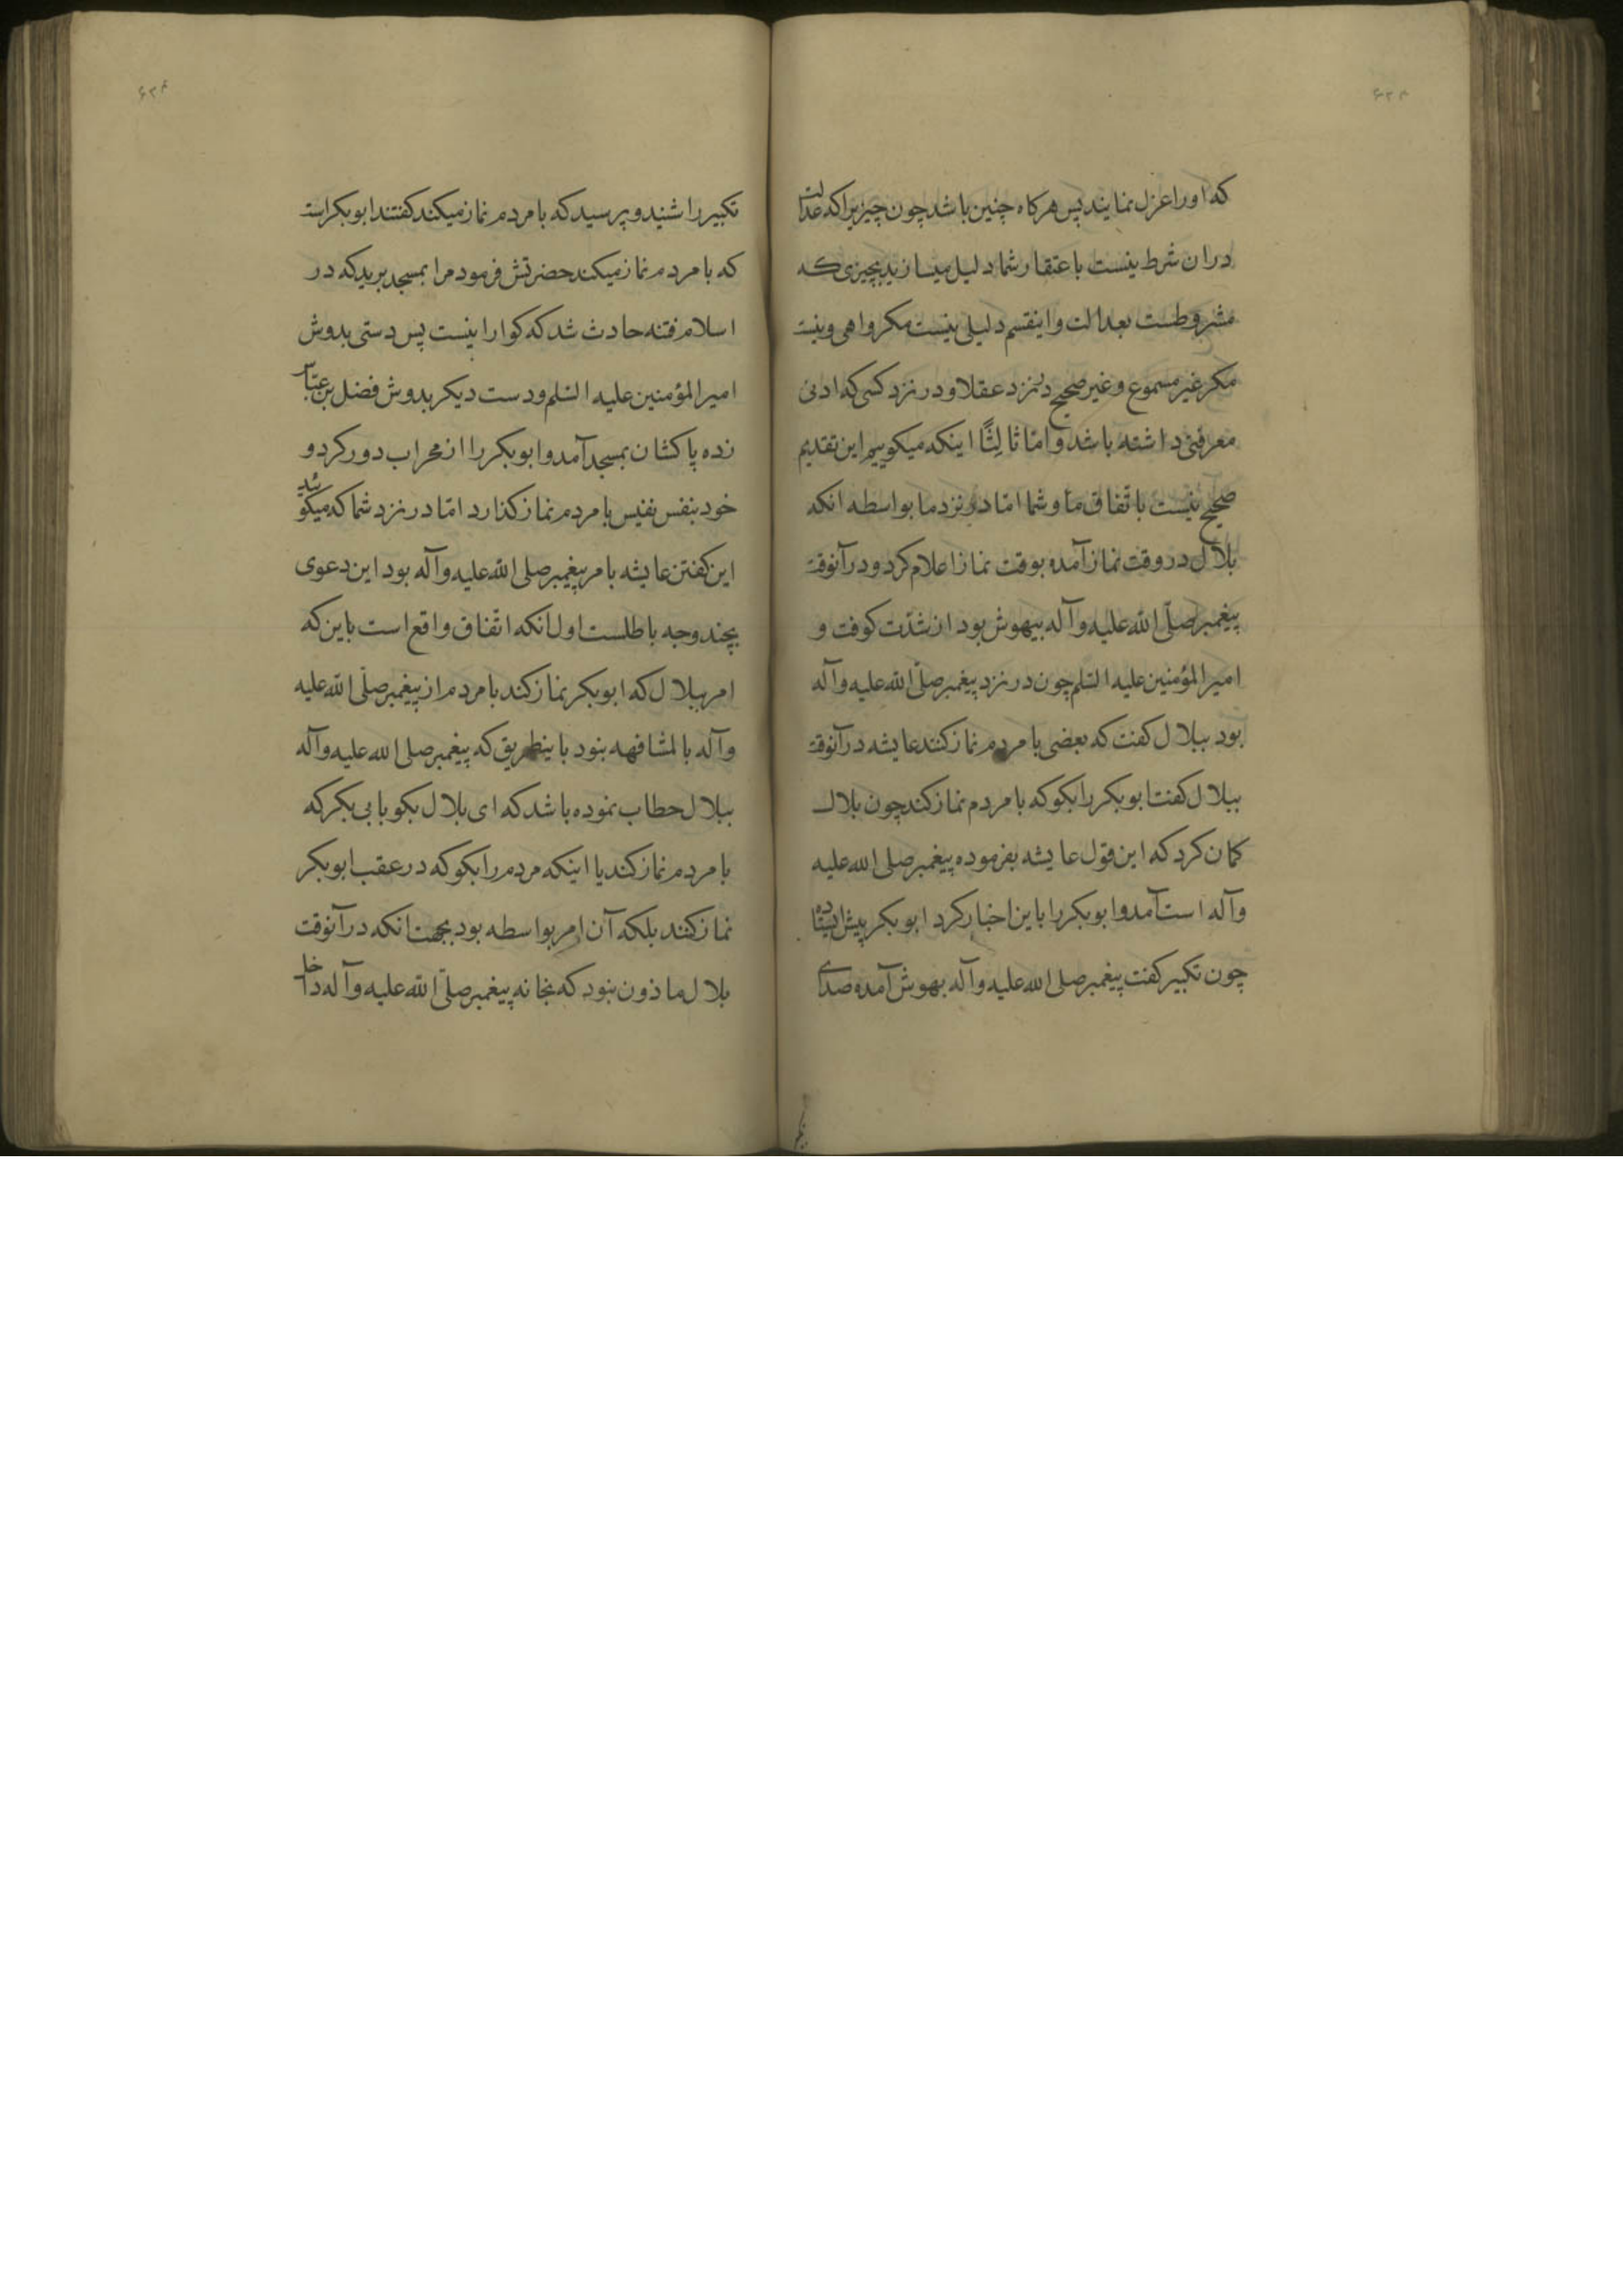 که او را عزل نمایند پس هرکاه چنین باشد چون چیزیرا که عدالت
دران شرط نیست باعتقاد شما دلیل میسازید بچیزی که
مشروطست بعدالت و اینقسم دلیلی نیست مکر واهی و نیست
مکر غیر مسموع و غیر صحیح در نزد عقلا و در نزد کسی که ادنی
معرفتی داشته باشد و امّا ثالِثًا اینکه میکوییم این تقدیم
صحیح نیست باتّفاق ما و شما امّا در نزد ما بواسطه انکه
بلال در وقت نماز آمده بوقت نماز اعلام کرد و در آنوقت
پیغمبر صلّی الله علیه و آله بیهوش بود از شدّت کوفت و
امیرالمؤمنین علیه السّلم چون در نزد پیغمبر صلّی الله علیه و آله
بود ببلال کفت که بعضی با مردم نماز کنند عایشه در آنوقت
ببلال کفت ابوبکر را بکو که با مردم نماز کند چون بلال
کمان کرد که این قول عایشه بفرموده پیغمبر صلی الله علیه
و آله است آمد و ابوبکر را باین اخبار کرد ابوبکر پیش ایستاد
چون تکبیر کفت پیغمبر صلی الله علیه و آله بهوش آمده صدای
تکبیر را شنید و پرسید که با مردم نماز میکند کفتند ابوبکر است
که با مردم نماز میکند حضرتش فرمود مرا بمسجد برید که در
اسلام فتنه حادث شد که کوارا نیست پس دستی بدوش
امیرالمؤمنین علیه السّلم و دست دیکر بدوش فضل بن عبّاس
زده پاکشان بمسجد آمد و ابوبکر را از محراب دور کرد و
خود بنفس نفیس با مردم نماز کذارد امّا در نزد شما که میکوئید
این کفتن عایشه بامر پیغمبر صلی الله علیه و آله بود این دعوی
بچند وجه باطلست اول انکه اتّفاق واقع است باین که
امر ببلال که ابوبکر نماز کند با مردم از پیغمبر صلّی الله علیه
و آله بالمشافهه نبود باینطریق که پیغمبر صلی الله علیه و آله
ببلال حطاب نموده باشد که ای بلال بکو بابی بکر که
با مردم نماز کند یا اینکه مردم را بکو که در عقب ابوبکر
نماز کنند بلکه آن امر بواسطه بود بجهت انکه در آنوقت
بلال ماذون نبود که بخانه پیغمبر صلّی الله علیه و آله داخل